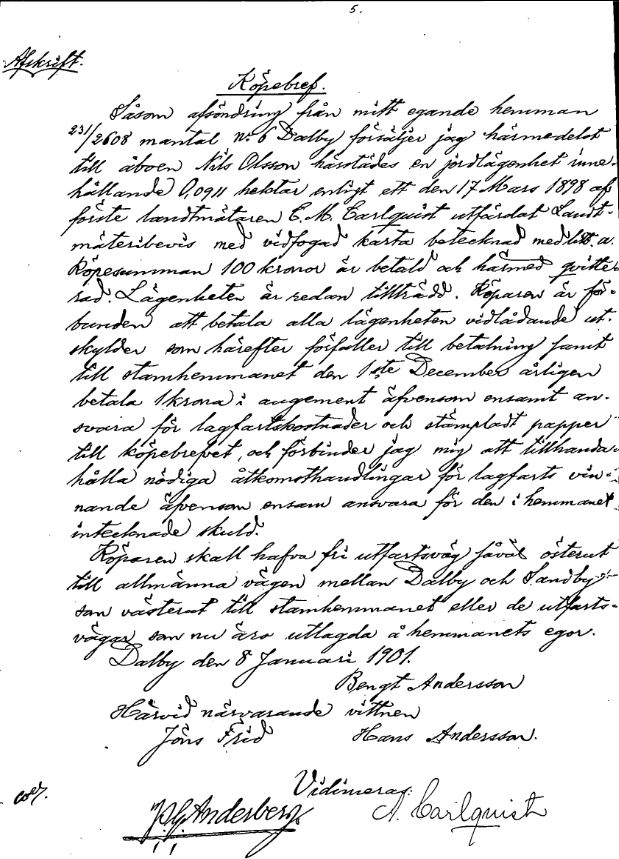 5.
Afskrift.
Köpebref.
Såsom afsöndring från mitt egande hemman
231/2608 mantal No 6 Dalby försäljer jag härmedelst
till åboen Nils Olsson härstädes en jordlägenhet inne-
hållande 0,0911 hektar enligt ett den 17 Mars 1898 af
förste landtmätaren C. M. Carlquist utfärdat Landt-
mäteribevis med vidfogad karta betecknad med litt. a.
Köpesumman 100 kronor är betald och härmed qvitte-
rad. Lägenheten är redan tillträdd. Köparen är för-
bunden att betala alla lägenheten vidlådande ut-
skylder som härefter förfaller till betalning samt
till stamhemmanet den 1ste December årligen
betala 1 krona i augement äfvensom ensamt an-
svara för lagfartskostnader och stämpladt papper
till köpebrevet, och förbinder jag mig att tillhanda-
hålla nödiga åtkomsthandlingar för lagfarts vin-
nande äfvensom ensam ansvara för den i hemmanet
intecknade skuld.
Köparen skall hafva fri utfartsväg såväl österut
till allmänna vägen mellan Dalby och Sandby
som västerut till stamhemmanet eller de utfarts-
vägar som nu äro utlagda å hemmanets egor.
Dalby den 8 Januari 1901.
Bengt Andersson
Härvid närvarande vittnen
Jöns Frid Hans Andersson.
Vidimeras:
P. G. Anderberg A. Carlquist